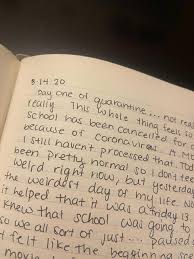 3·14·20
Day one of quarantine.... not real
really This whole thing feels so
School has been cancelled for a
because of coronavirus. A MO
I still haven't processed that. Tod
been pretty normal so I don't fee
weird right now, but yesterday
the weirdest day of my life. No
it helped that it was a friday 13.
knew that school was going to
so we all sort of just.... paused
t felt like the beginning so
movie